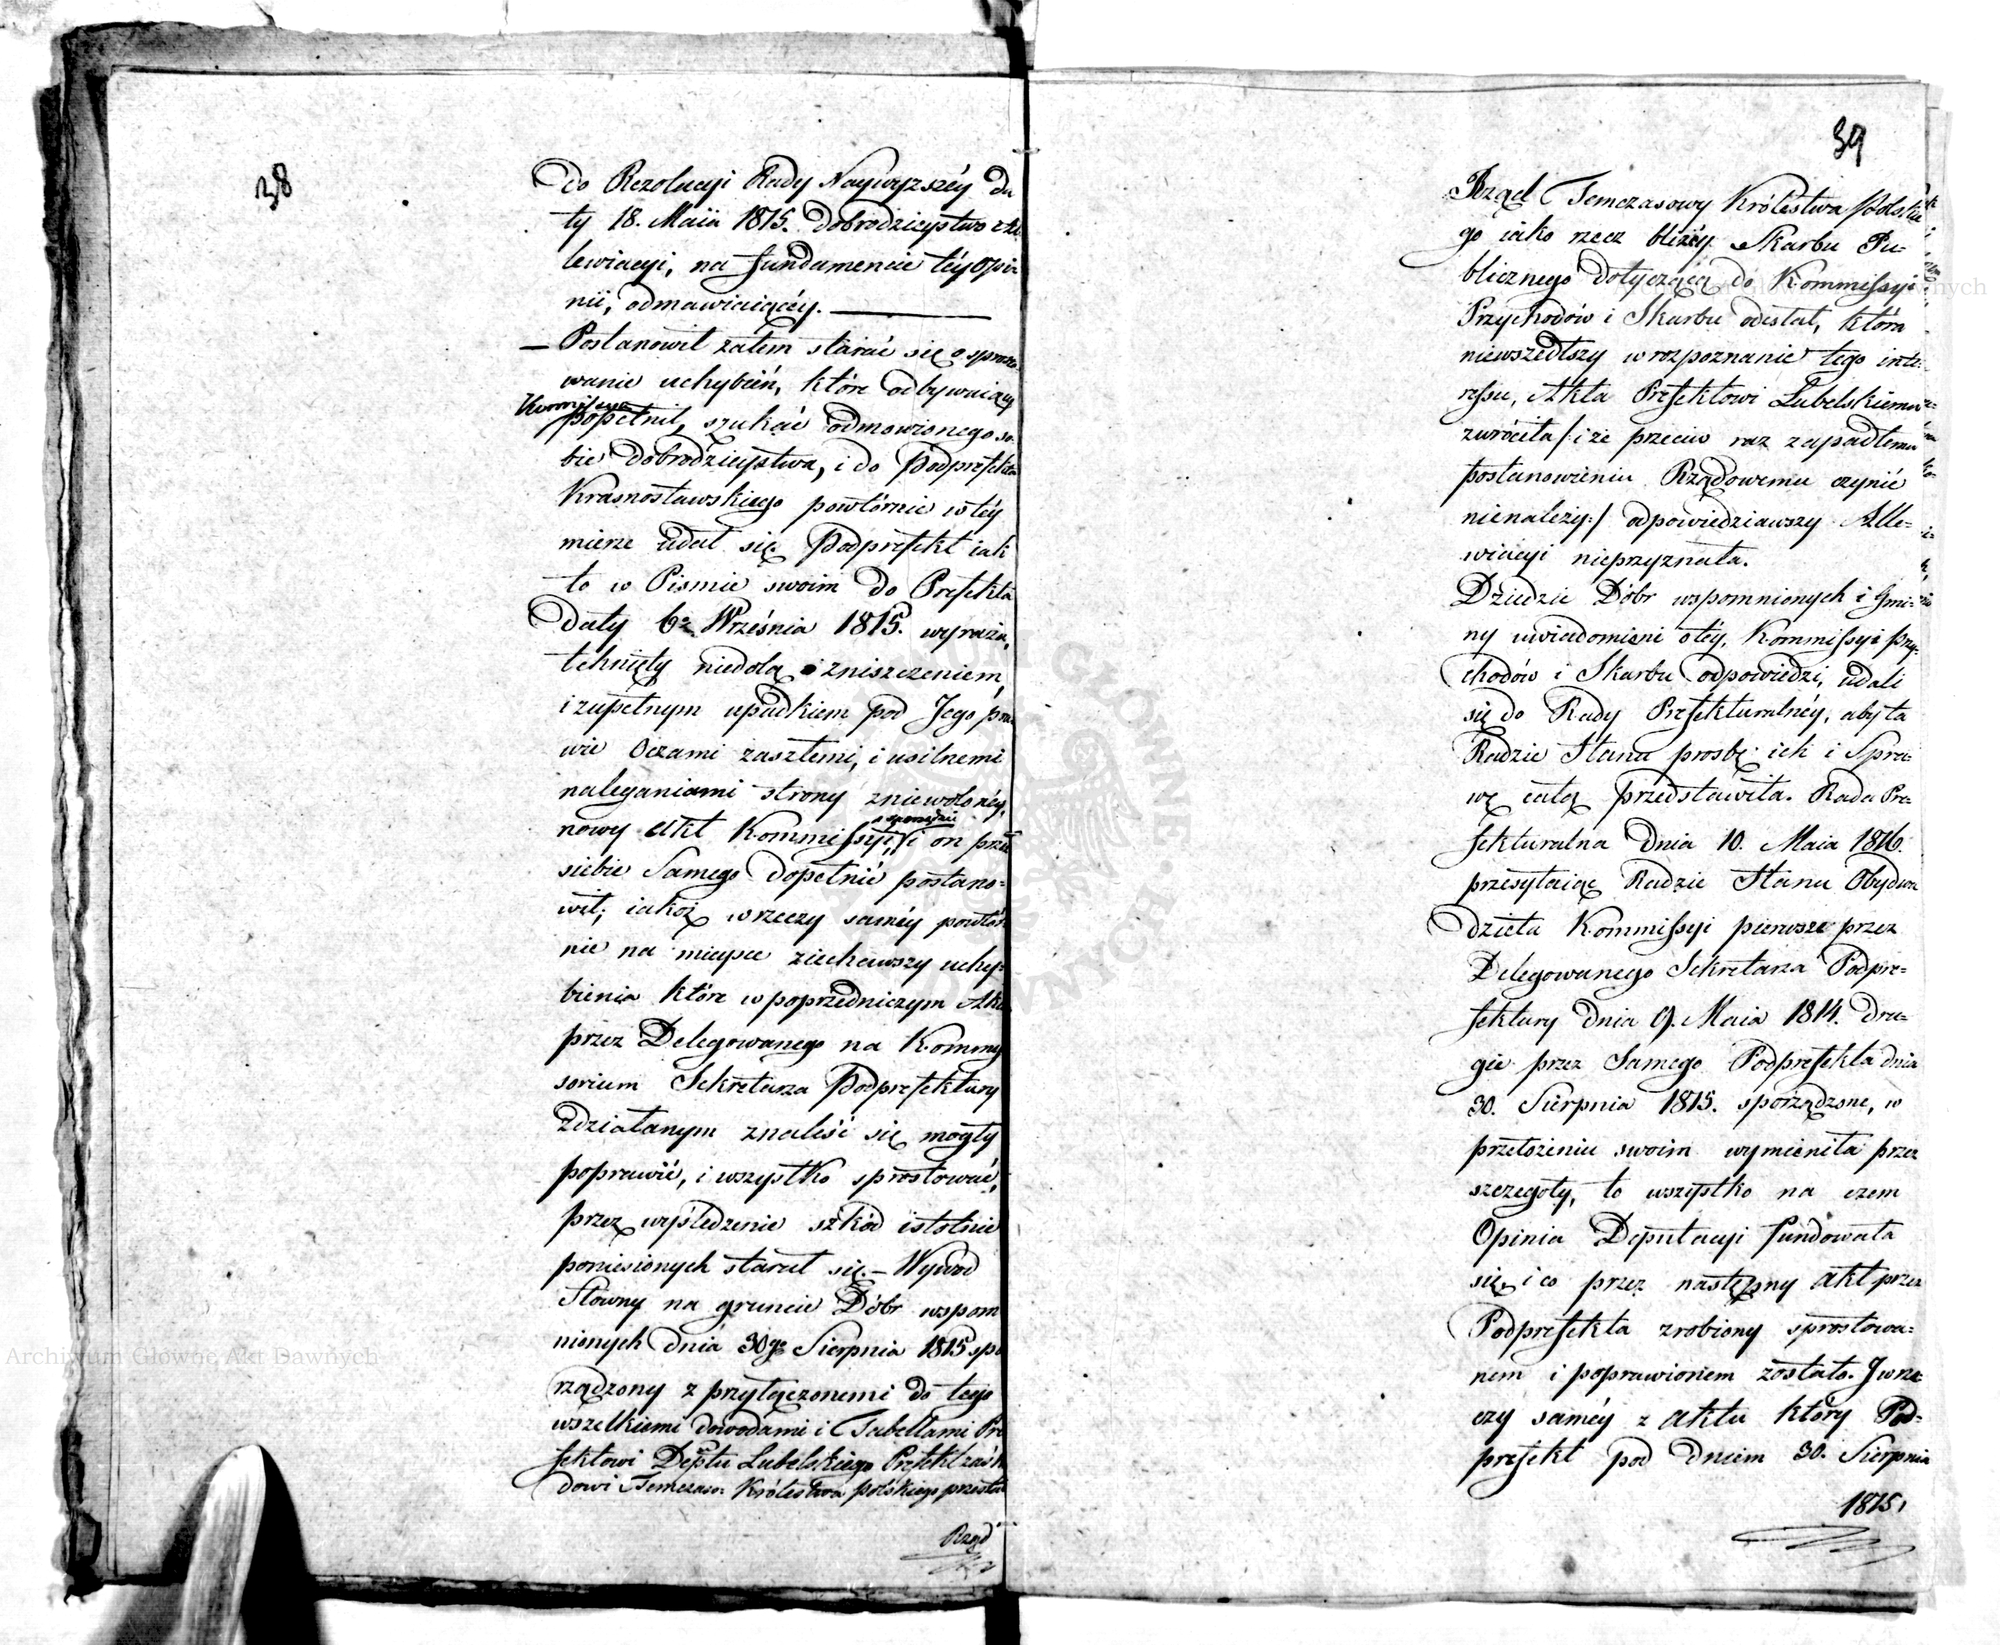 38
do Rezolucyi Rady Naywyzszéy da
ty 18. Maia 1815. dobrodzieystwo
lewiacyi, na fundamencie téy Opi
nii, odmawiaiącéy.
Postanowił zatem starać się o sprosto
wanie uchybień, które odbywaiący
Kommissyą
popełnił, szukać odmowionego so
bie dobrodzieystwa, i do Podprefekta
Krasnostawskiego powtórnie w téy
mierze udał się. Podprefekt iak
to w Pismie swoim do Prefekta
daty 6o Września 1815. wyraża,
tchnięty niedolą i zniszczeniem,
i zupełnym upadkiem pod Jego pra
wie Oczami zaszłemi, i usilnemi
naleganiami strony zniewolonéy,
sporządzić
nowy akt Kommissyi, i on przez
siebie Samego dopełnić postano-
wił; iakoż w rzeczy saméy powtór
nie na mieysce ziechawszy uchy-
bienia które w poprzedniczym Akc
przez Delegowanego na Kommis
sorium Sekretarza Podprefektury
zdziałanym znaleść się mogły
poprawić, i wszystko sprostować,
przez wyśledzenie szkód istotnie
poniesionych starał się. – Wywod
Słowny na gruncie Dóbr wspom
nionych dnia 30go Sierpnia 1815 spo
rządzony z przyłączonemi do tego
wszelkiemi dowodami i Tabellami Pre
fektowi Deptu Lubelskiego Prefekt zaś Rzą
dowi Temczaso: Królestwa polskiego przesłał
Rząd
39
Rząd Temczasowy Królestwa polskie
go iako rzecz bliżéy Skarbu Pu-
blicznego dotyczącą do Kommissyi
Przychodów i Skarbu odesłał, która
niewszedłszy w rozpoznanie tego inte-
ressu, Akta Prefektowi Lubelskiemu
zwróciła /: i że przeciw raz zapadłemu
postanowieniu Rządowemu czynić
nienależy :/ odpowiedziawszy Alle-
wiacyi nieprzyznała.
Dziedzic Dóbr wspomnionych i Gmi-
ny uwiadomieni o téy, Kommissyi Przy-
chodów i Skarbu odpowiedzi, udali
się do Rady Prefekturalnéy, aby ta
Radzie Stanu prosbę ich i Spra-
wę całą przedstawiła. Rada Pre-
fekturalna Dnia 10. Maia 1816.
przesyłaiąc Radzie Stanu Obydwa
dzieła Kommissyi pierwsze przez
Delegowanego Sekretarza Podpre-
fektury dnia 9. Maia 1814. dru-
gie przez Samego Podprefekta dnia
30. Sierpnia 1815. sporządzone, w
przełożeniu swoim wymieniła przez
szczegóły, to wszystko na czem
Opinia Deputacyi fundowała
się, i co przez następny akt przez
Podprefekta zrobiony sprostowa-
nem i poprawionem zostało. J w rze
czy saméy z aktu który Pod-
prefekt pod dniem 30. Sierpnia
1815,
Archiwum Główne Akt Dawnych